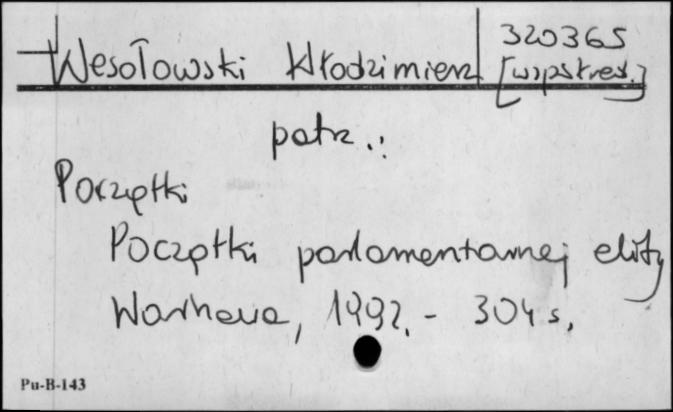 320365
Wesołowski Włodzimierz [wspstred.]
patz.:
Początki
Początki parlamentarnej elity
Warszawa, 1992. - 304 s.
Pu-B-143